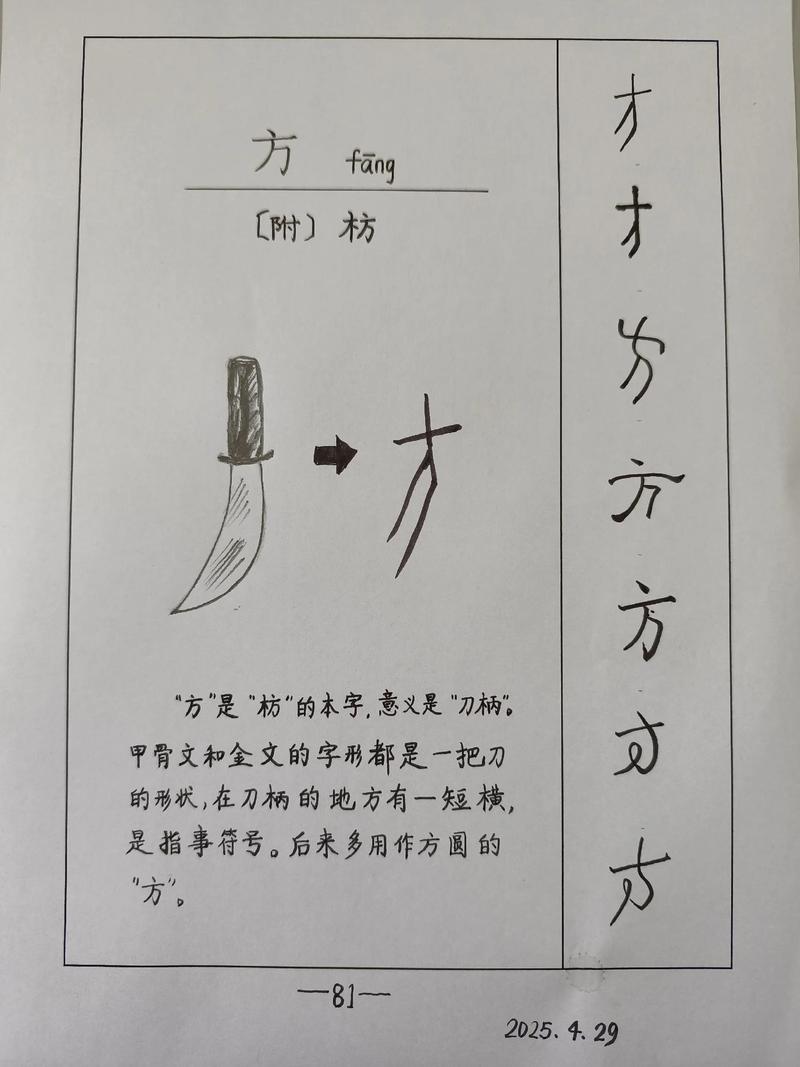 方 fāng
〔附〕枋
"方"是"枋"的本字,意义是"刀柄"。
甲骨文和金文的字形都是一把刀
的形状,在刀柄的地方有一短横,
是指事符号。后来多用作方圆的
"方"。
方
方
方
方
方
方
方
方
—81—
2025.4.29